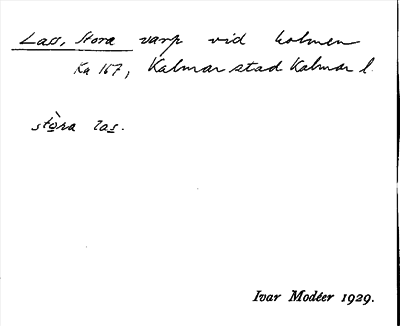 Lass, Stora varp vid holmen
Ka 167, Kalmar stad Kalmar l.
stòra las.
Ivar Modéer 1929.